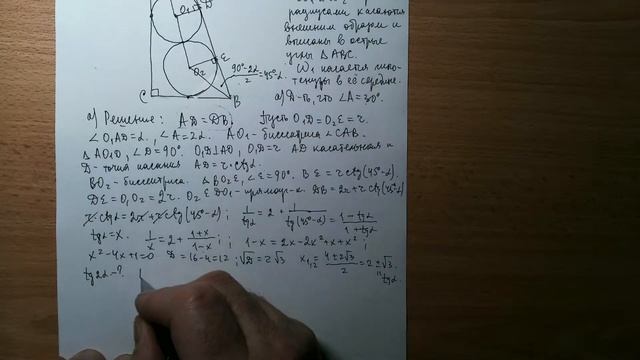 радиусами касаются
внешним образом и
вписаны в острые
углы ΔABC.
W₁ касается гипо-
тенузы в её середине.
а) Д-ть, что ∠A=30°.
O₁ D
E
O₂
(90°-2α)/2=45°-α
C B
а) Решение: AD=DB. Пусть O₁D=O₂E=r.
∠O₁AD=α, ∠A=2α. AO₁-биссектриса ∠CAB.
ΔAO₁D, ∠D=90°. O₁D⊥AD, O₁D=r AD касательная и
D-точка касания AD=r·ctgα.
BO₂-биссектриса. ΔBO₂E, ∠E=90°. BE=r ctg(45°-α).
DE=O₁O₂=2r. O₂EDO₁-прямоуг-к. DB=2r+r ctg(45°-α)
r·ctgα=2r+r ctg(45°-α); 1/tgα=2+1/tg(45°-α)=(1-tgα)/(1+tgα)
tgα=x. 1/x=2+(1+x)/(1-x); 1-x=2x-2x²+x+x²;
x²-4x+1=0 D=16-4=12; √D=2√3 x₁,₂=(4±2√3)/2=2±√3.
tg2α-? tgα